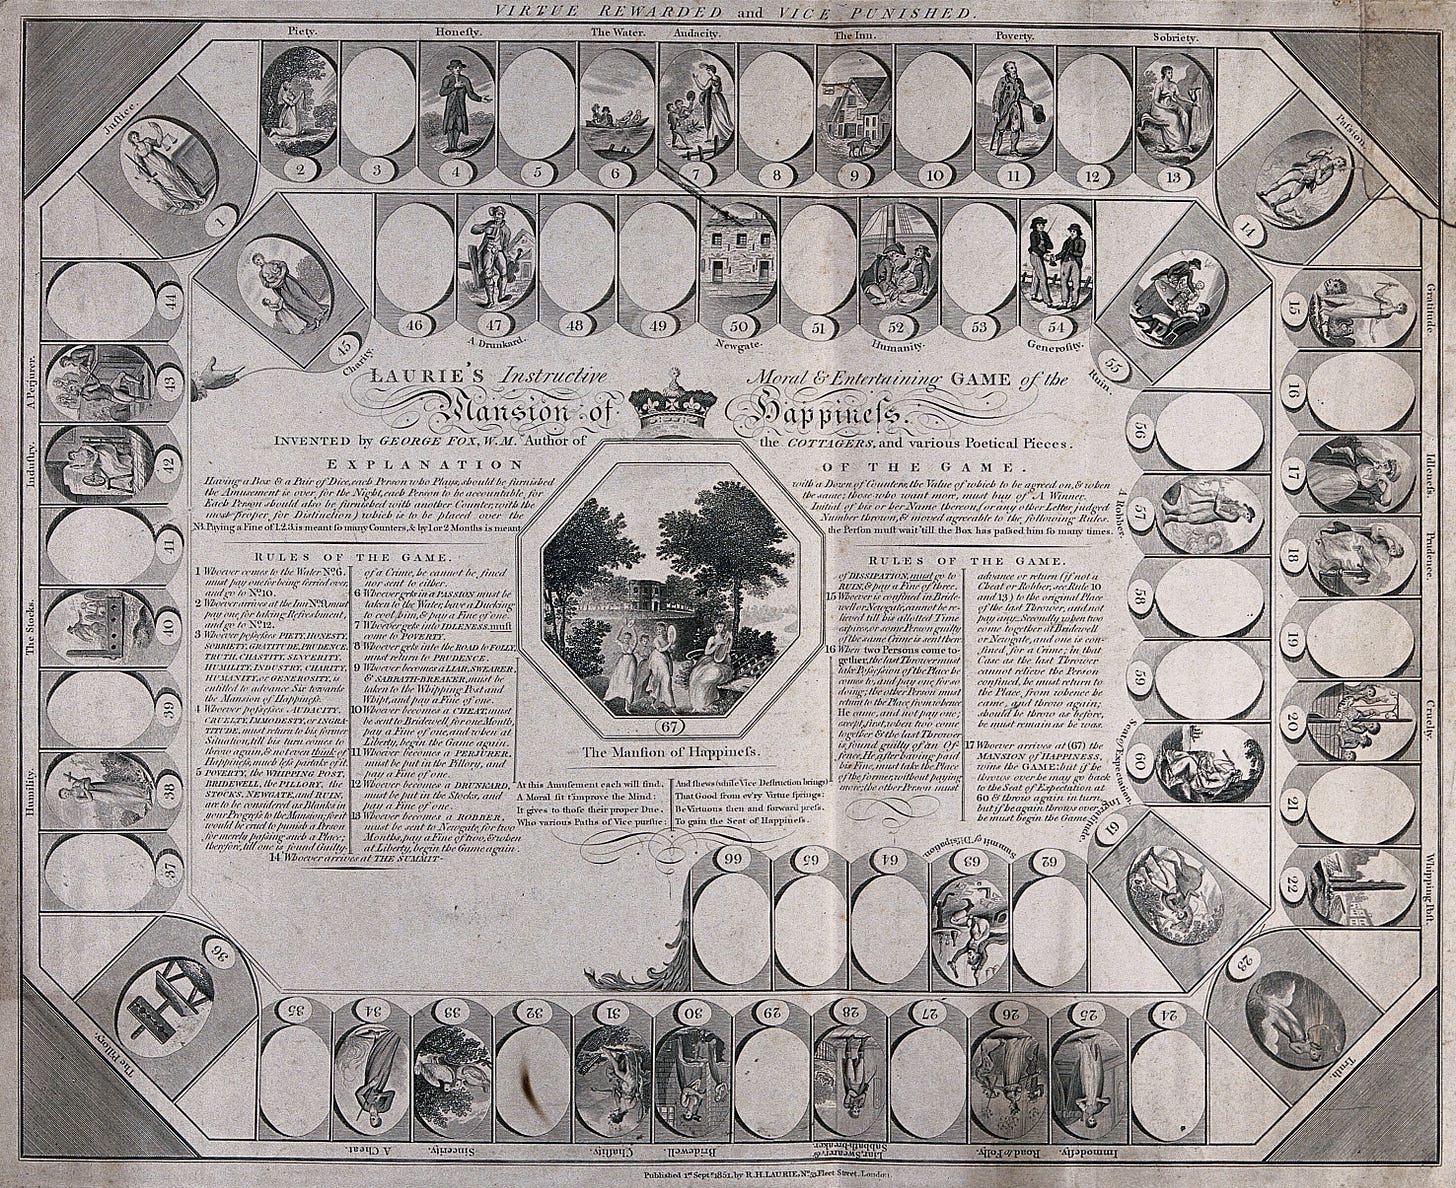 VIRTUE REWARDED and VICE PUNISHED.
Piety. Honesty. The Water. Audacity. The Inn. Poverty. Sobriety.
2 3 4 5 6 7 8 9 10 11 12 13
Justice.
1
Passion.
14
Gratitude.
15
16
Idleness.
17
Prudence.
18
19
Cruelty.
20
21
Whipping Post.
22
Truth.
23
24
Immodesty.
25
Road to Folly.
26
27
Liar, Swearer, &
Sabbath-breaker.
28
29
Bridewell.
30
Chastity.
31
32
Sincerity.
33
A Cheat.
34
35
The Pillory.
36
37
Humility.
38
39
The Stocks.
40
41
Industry.
42
A Perjurer.
43
44
Charity.
45
46 47 48 49 50 51 52 53 54
A Drunkard. Newgate. Humanity. Generosity.
Ruin.
55
56
A Robber.
57
58
59
Seat of Expectation.
60
Ingratitude.
61
62
Summit of Dissipation.
63
64
65
66
LAURIE'S Instructive Moral & Entertaining GAME of the
Mansion of Happiness.
INVENTED by GEORGE FOX, W.M. Author of the COTTAGERS, and various Poetical Pieces.
EXPLANATION OF THE GAME.
Having a Box & a Pair of Dice, each Person who Plays, should be furnished with a Dozen of Counters, the Value of which to be agreed on, & when
the Amusement is over, for the Night, each Person to be accountable for the same; those who want more, must buy of A Winner.
Each Person should also be furnished with another Counter, with the Initial of his or her Name thereon, (or any other Letter judged
most proper for Distinction) which is to be placed over the Number thrown, & moved agreeable to the following Rules.
NB. Paying a Fine of 1.2.3. is meant so many Counters, & by 1 or 2 Months is meant the Person must wait 'till the Box has passed him so many times.
RULES OF THE GAME.
1 Whoever comes to the Water No. 6.
must pay one for being ferried over,
and go to No. 10.
2 Whoever arrives at the Inn No. 9, must
pay one, for taking Refreshment,
and go to No. 12.
3 Whoever possesses PIETY, HONESTY,
SOBRIETY, GRATITUDE, PRUDENCE,
TRUTH, CHASTITY, SINCERITY,
HUMILITY, INDUSTRY, CHARITY,
HUMANITY, or GENEROSITY, is
entitled to advance Six towards
the Mansion of Happiness.
4 Whoever possesses AUDACITY,
CRUELTY, IMMODESTY, or INGRA-
TITUDE, must return to his former
Situation, till his turn comes to
throw again, & not even think of
Happiness, much less partake of it.
5 POVERTY, the WHIPPING POST,
BRIDEWELL, the PILLORY, the
STOCKS, NEWGATE, and RUIN,
are to be considered as Blanks in
your Progress to the Mansion; for it
would be cruel to punish a Person
for merely passing such a Place;
therefore, till one is found Guilty
of a Crime, he cannot be fined
nor sent to either.
6 Whoever gets in a PASSION must be
taken to the Water, have a Ducking
to cool him, & pay a Fine of one.
7 Whoever gets into IDLENESS, must
come to POVERTY.
8 Whoever gets into the ROAD to FOLLY,
must return to PRUDENCE.
9 Whoever becomes a LIAR, SWEARER,
& SABBATH-BREAKER, must be
taken to the Whipping Post and
Whipt, and pay a Fine of one.
10 Whoever becomes a CHEAT, must
be sent to Bridewell, for one Month,
pay a Fine of one, and when at
Liberty, begin the Game again.
11 Whoever becomes a PERJURER,
must be put in the Pillory, and
pay a Fine of one.
12 Whoever becomes a DRUNKARD,
must be put in the Stocks, and
pay a Fine of one.
13 Whoever becomes a ROBBER,
must be sent to Newgate, for two
Months, pay a Fine of two, & when
at Liberty, begin the Game again.
14 Whoever arrives at THE SUMMIT
RULES OF THE GAME.
of DISSIPATION, must go to
RUIN, & pay a Fine of three.
15 Whoever is confined in Bride-
well or Newgate, cannot be re-
lieved till his allotted Time
expires, or some Person guilty
of the same Crime is sent there.
16 When two Persons come to-
gether, the last Thrower must
take Possession of the Place he
comes to, and pay one for so
doing; the other Person must
return to the Place from whence
He came, and not pay one;
except, first, when two come
together & the last Thrower
is found guilty of an Of-
fence, He after having paid
his Fine, must take the Place
of the former, without paying
more; the other Person must
advance or return (if not a
Cheat or Robber, see Rule 10
and 13) to the original Place
of the last Thrower, and not
pay any. Secondly when two
come together at Bridewell
or Newgate, and one is con-
fined for a Crime; in that
Case as the last Thrower
cannot relieve the Person
confined, he must return to
the Place, from whence he
came, and throw again;
should he throw as before,
he must remain as he was.
17 Whoever arrives at (67) the
MANSION of HAPPINESS,
wins the GAME; but if he
throws over he may go back
to the Seat of Expectation at
60 & throw again in turn,
but if he again throws over,
he must begin the Game.
67
The Mansion of Happiness.
At this Amusement each will find,
A Moral fit t'improve the Mind:
It gives to those their proper Due,
Who various Paths of Vice pursue;
And shews (while Vice Destruction brings)
That Good from ev'ry Virtue springs:
Be Virtuous then and forward press,
To gain the Seat of Happiness.
Published 1st Septr. 1851, by R.H. LAURIE, No. 53, Fleet Street, London.